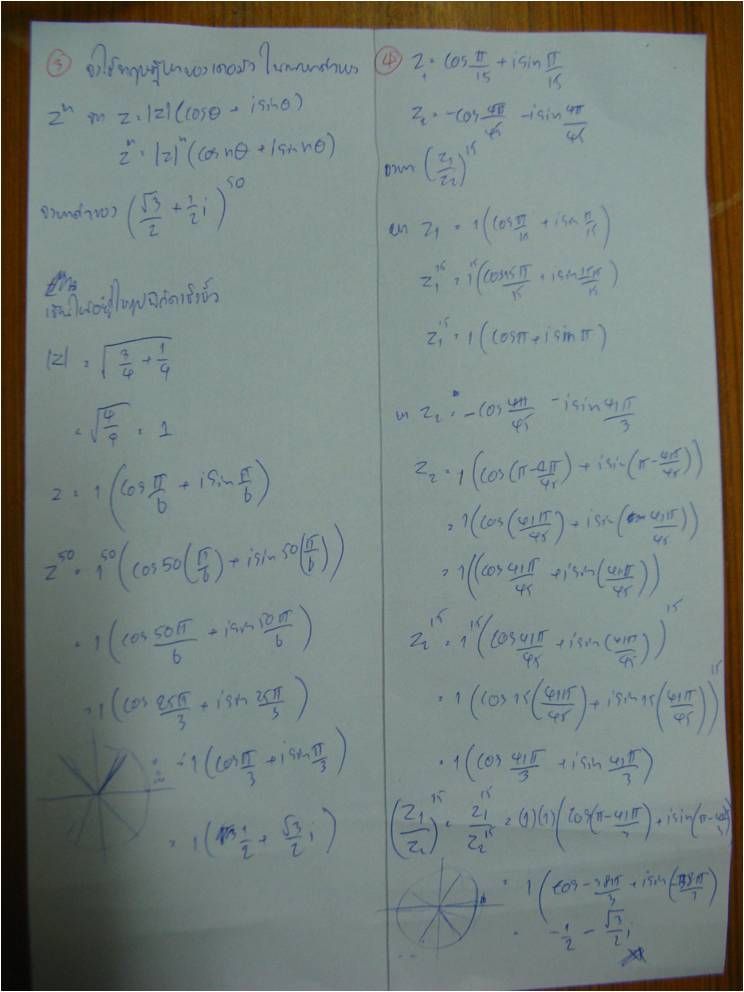 ③ จงใช้ทฤษฎีบทของเดอมัวร์ ในการหาค่าของ
zⁿ จาก z = |z|(cosθ + isinθ)
zⁿ = |z|ⁿ(cosnθ + isin nθ)
จงหาค่าของ (√3/2 + 1/2 i)⁵⁰
เขียนให้อยู่ในรูปพิกัดเชิงขั้ว
|z| = √(3/4 + 1/4)
= √(4/4) = 1
z = 1(cos π/6 + isin π/6)
z⁵⁰ = 1⁵⁰(cos50(π/6) + isin50(π/6))
= 1(cos 50π/6 + isin 50π/6)
= 1(cos 25π/3 + isin 25π/3)
= 1(cos π/3 + isin π/3)
= 1(1/2 + √3/2 i)
④ z₁ = cos π/15 + isin π/15
z₂ = -cos 4π/45 - isin 4π/45
จงหา (z₁/z₂)¹⁵
หา z₁ = 1(cos π/15 + isin π/15)
z₁¹⁵ = 1¹⁵(cos 15π/15 + isin 15π/15)
z₁¹⁵ = 1(cosπ + isinπ)
หา z₂ = -cos 4π/45 - isin 41π/3
z₂ = 1(cos(π - 4π/45) + isin(π - 4π/45))
= 1(cos(41π/45) + isin(41π/45))
= 1((cos 41π/45 + isin(41π/45))
z₂¹⁵ = 1¹⁵(cos 41π/45 + isin(41π/45))¹⁵
= 1(cos15(41π/45) + isin15(41π/45))¹⁵
= 1(cos 41π/3 + isin 41π/3)
(z₁/z₂)¹⁵ = z₁¹⁵/z₂¹⁵ = (1)(1)(cos(π - 41π/3) + isin(π - 41π/3)
= 1(cos -38π/3 + isin(-38π/3)
= -1/2 - √3/2 i